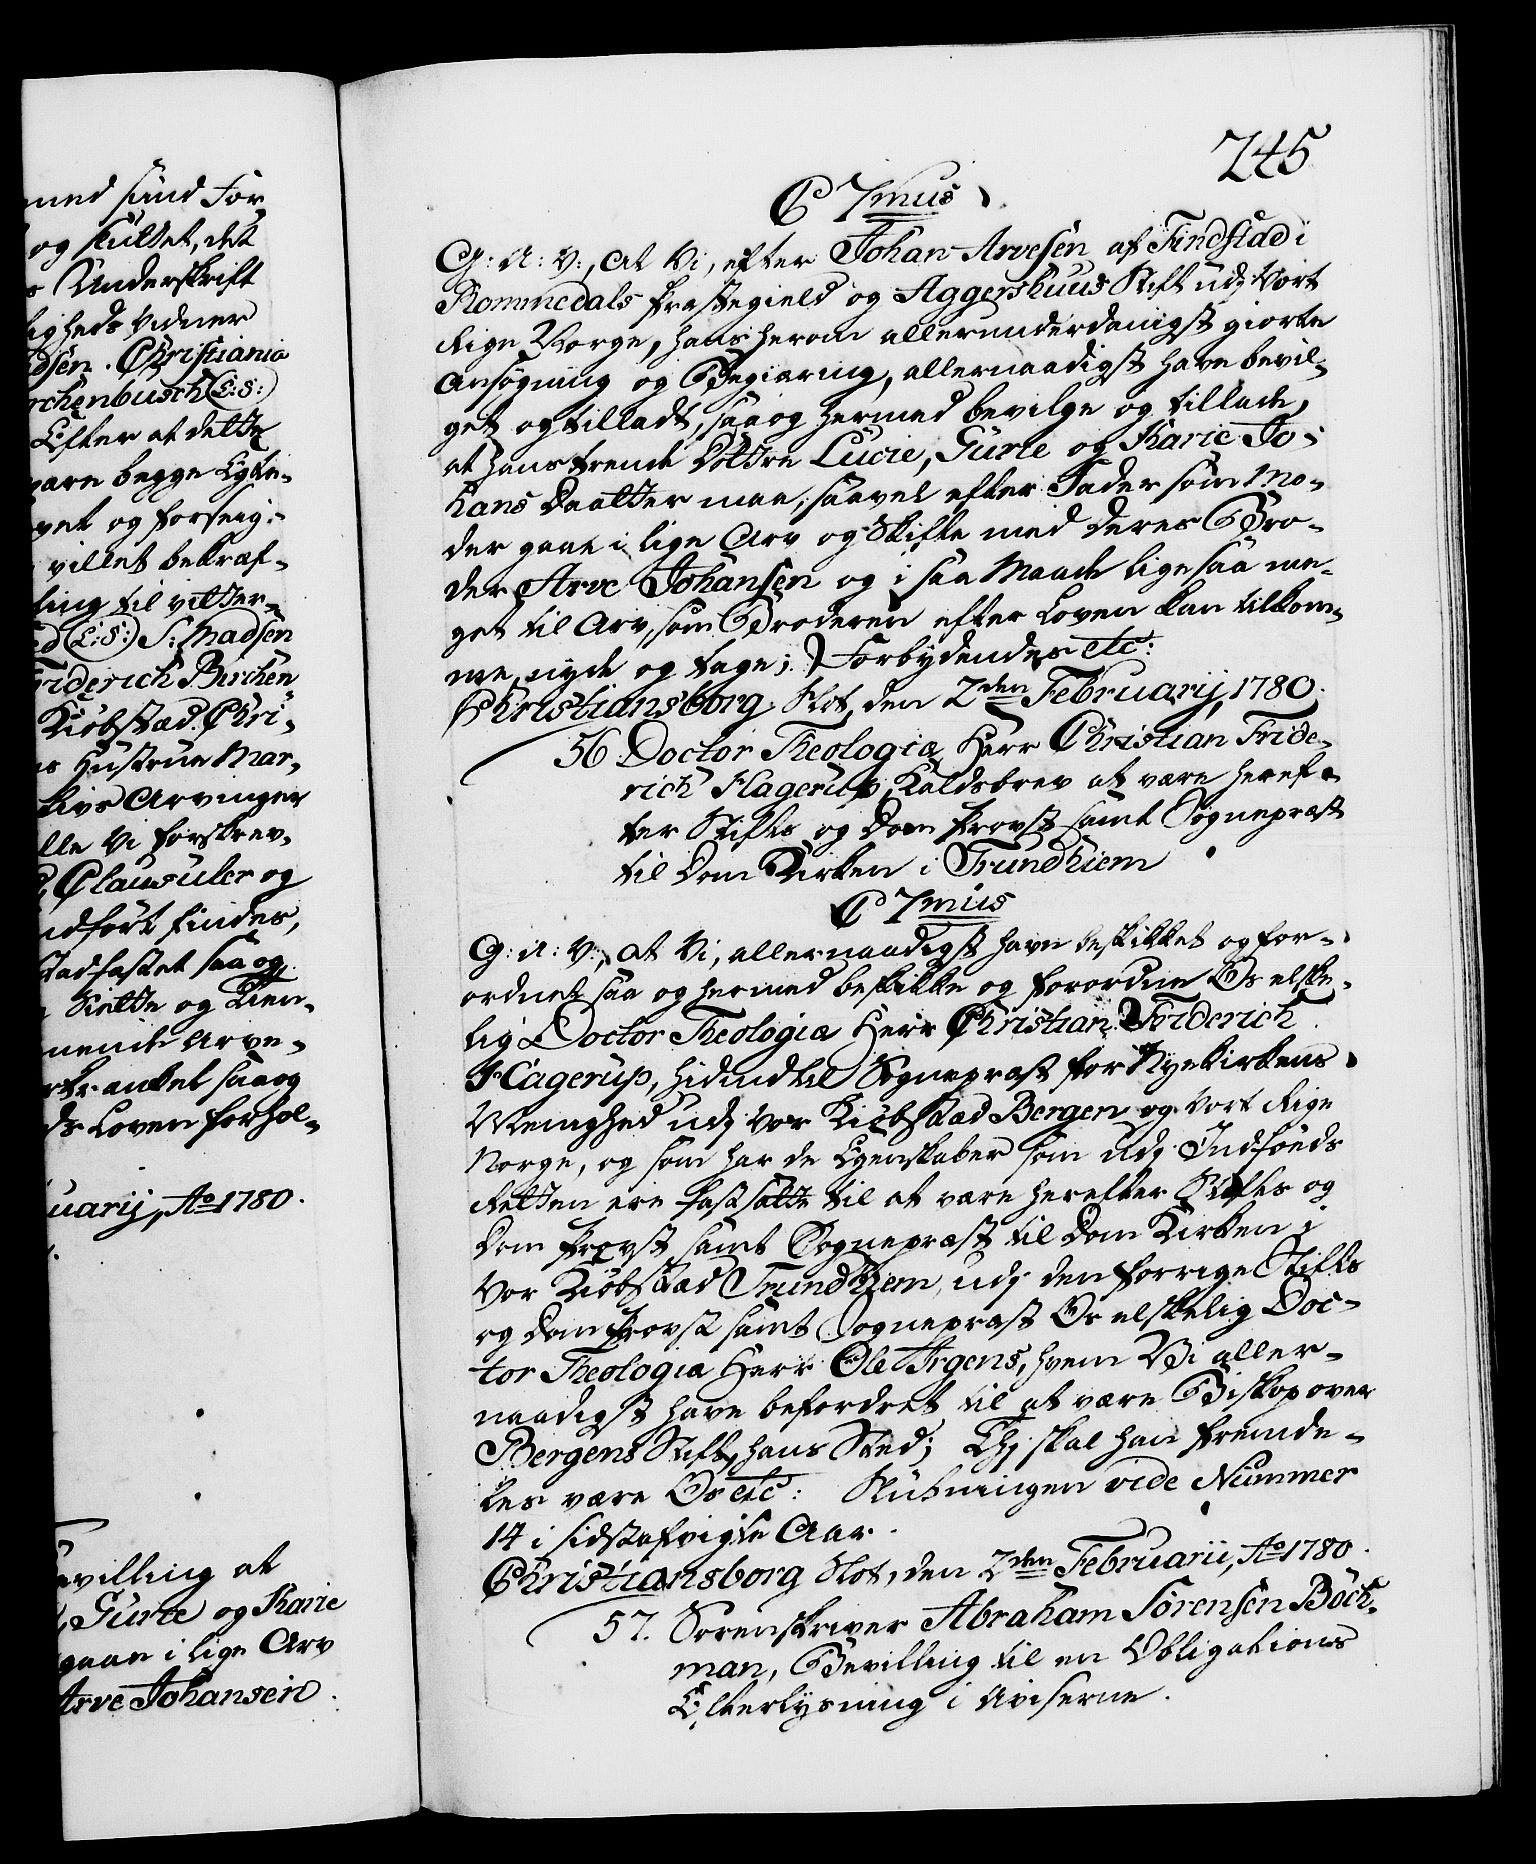 med sund For
og skultet, det
Underskrift
ligheds Vidner
dsen. Christiania
rchenbusch (L:S:)
Efter at dette
vare begge Egte-
vet og forseig-
villet bekræf-
ling til ytter-
d (L:S:) S: Madsen
Friderich Birchen
Kiöbstæd Chri-
s Hustrue Mar-
Livs Arvinger
lle Vi forskrev-
Clausuler og
ndfört findes,
stadfæstet saa og
Rette og Kien-
nende Arve-
saa og
Loven forhol-
uarij, Ao 1780.
evilling at
Gurte og Karie
gaae i lige Arv
Arve Johansen.
245
C 7mus
G: A: V:, at Vi, efter Johan Arvesen af Findstad i
Rommedals Præstegield og Aggershuus Stift udj Vort
Rige Norge, hans herom allerunderdanigst giorte
Ansøgning og Begiæring, allernaadigst have bevil-
get og tilladt, saa og hermed bevilge og tillade,
at hans trende Döttre Lucie, Gurte og Karie Jo-
hans Daatter maa, saavel efter Fader som Mo-
der gaae i lige Arv og Skifte med deres Bro-
der Arve Johansen og i saa Maade ligesaa me-
get til Arv, som Broderen efter Loven kan tilkom-
me, nyde og tage; Forbydendes etc:
Christiansborg Slot, den 2den Februarij, 1780.
56 Doctor Theologiæ Herr Christian Fride-
rich Hagerup, Kaldsbrev at være heref-
ter Stifts og Dom Provst samt Sognepræst
til Dom Kirken i Trundhiem
C 7mus
G: A: V:, at Vi, allernaadigst have beskikket og for-
ordnet saa og hermed beskikke og forordne Os elske-
lig Doctor Theologiæ Herr Christian Friderich
Hagerup, hidindtil Sognepræst for Nyekirkens
Menighed udj Vor Kiöbstæd Bergen og Vort Rige
Norge, og som har de Egenskaber som udj Indföds
Retten ere fastsatte til at være herefter Stifts og
Dom Provst samt Sognepræst til Dom Kirken i
Vor Kiöbstæd Trundhiem, udj den forrige Stifts
og Dom Provst samt Sognepræst Os elskelig Doc-
tor Theologia Herr Ole Irgens, hvem Vi aller-
naadigst have befordret til at være Biskop over
Bergens Stift, hans Sted; Thj skal han fremde-
les være Os etc: Slutningen vide Nummer
14 i sidstafvigte Aar.
Christiansborg Slot, den 2den Februarii, Ao 1780.
57. Sorenskriver Abraham Sörensen Böck-
man, Bevilling til en Obligations
Efterlysning i Aviserne.